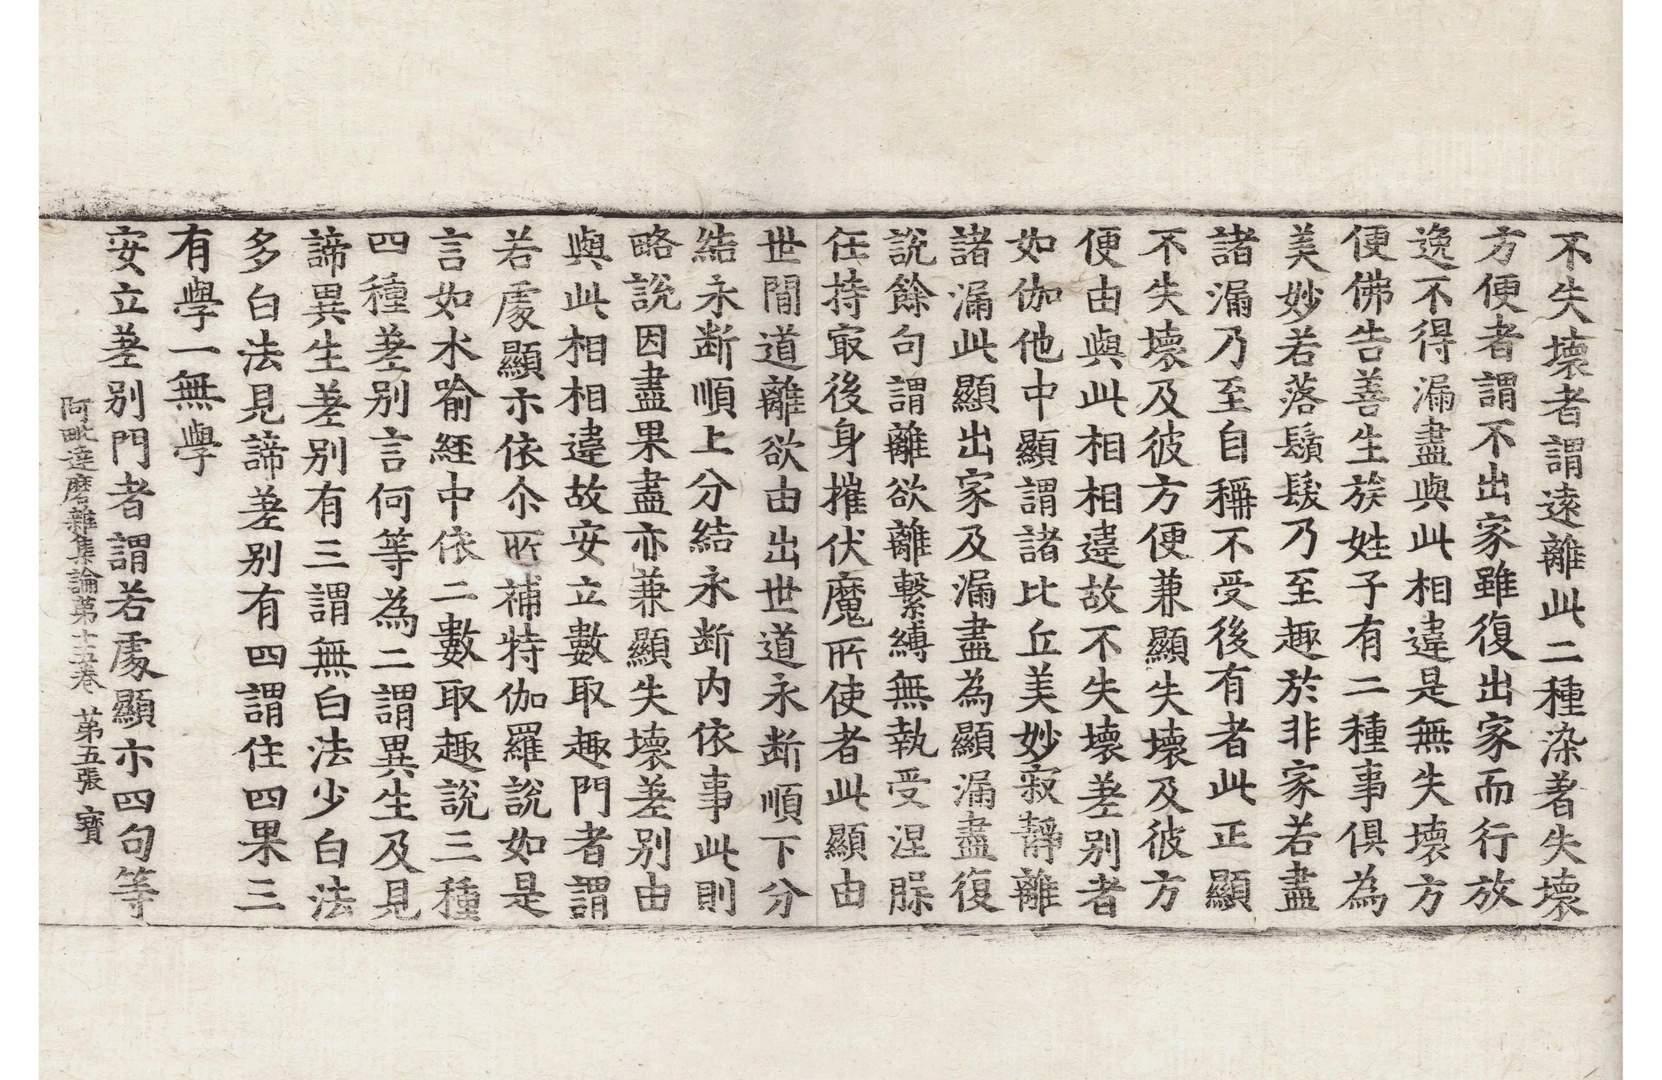 不失壞者謂遠離此二種染著失壞
方便者謂不出家雖復出家而行放
逸不得漏盡與此相違是無失壞方
便佛告善生族姓子有二種事俱為
美妙若落鬚髮乃至趣於非家若盡
諸漏乃至自稱不受後有者此正顯
不失壞及彼方便兼顯失壞及彼方
便由與此相相違故不失壞差別者
如伽他中顯謂諸比丘美妙寂靜離
諸漏此顯出家及漏盡為顯漏盡復
說餘句謂離欲離繫縛無執受涅槃
任持㝡後身摧伏魔所使者此顯由
世間道離欲由出世道永斷順下分
結永斷順上分結永斷內依事此則
略說因盡果盡亦兼顯失壞差別由
與此相相違故安立數取趣門者謂
若處顯示依尒所補特伽羅說如是
言如水喻經中依二數取趣說三種
四種差別言何等為二謂異生及見
諦異生差別有三謂無白法少白法
多白法見諦差別有四謂住四果三
有學一無學
安立差別門者謂若處顯示四句等
阿毗達磨雜集論第十五卷 第五張 寶